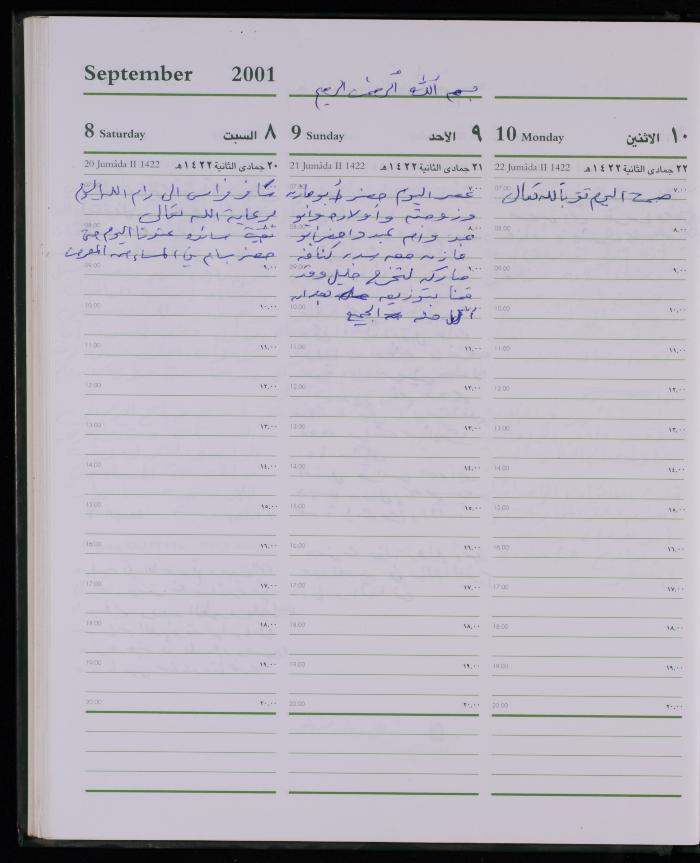 September 2001
بسم الله الرحمن الرحيم
8 Saturday السبت ٨
20 Jumâda II 1422 ٢٠ جمادى الثانية ١٤٢٢هـ
سافر فراس الى رام الله اليوم
برعاية الله تعالى
سائد عندنا اليوم حتى
حضر بسام في المساء من
07:00 ٧,٠٠
08:00 ٨,٠٠
09:00 ٩,٠٠
10:00 ١٠,٠٠
11:00 ١١,٠٠
12:00 ١٢,٠٠
13:00 ١٣,٠٠
14:00 ١٤,٠٠
15:00 ١٥,٠٠
16:00 ١٦,٠٠
17:00 ١٧,٠٠
18:00 ١٨,٠٠
19:00 ١٩,٠٠
20:00 ٢٠,٠٠
9 Sunday الأحد ٩
21 Jumâda II 1422 ٢١ جمادى الثانية ١٤٢٢هـ
عصر اليوم حضر أبو مازن
وزوجته وأولاده وابو
عبد وام عبد واحضر ابو
مازن معه سدر كنافة
مباركه لتخرج خليل وقد
قمنا بتوزيعه
الجميع
07:00 ٧,٠٠
08:00 ٨,٠٠
09:00 ٩,٠٠
10:00 ١٠,٠٠
11:00 ١١,٠٠
12:00 ١٢,٠٠
13:00 ١٣,٠٠
14:00 ١٤,٠٠
15:00 ١٥,٠٠
16:00 ١٦,٠٠
17:00 ١٧,٠٠
18:00 ١٨,٠٠
19:00 ١٩,٠٠
20:00 ٢٠,٠٠
10 Monday الاثنين ١٠
22 Jumâda II 1422 ٢٢ جمادى الثانية ١٤٢٢هـ
صبح اليوم بالله تعالى
07:00 ٧,٠٠
08:00 ٨,٠٠
09:00 ٩,٠٠
10:00 ١٠,٠٠
11:00 ١١,٠٠
12:00 ١٢,٠٠
13:00 ١٣,٠٠
14:00 ١٤,٠٠
15:00 ١٥,٠٠
16:00 ١٦,٠٠
17:00 ١٧,٠٠
18:00 ١٨,٠٠
19:00 ١٩,٠٠
20:00 ٢٠,٠٠